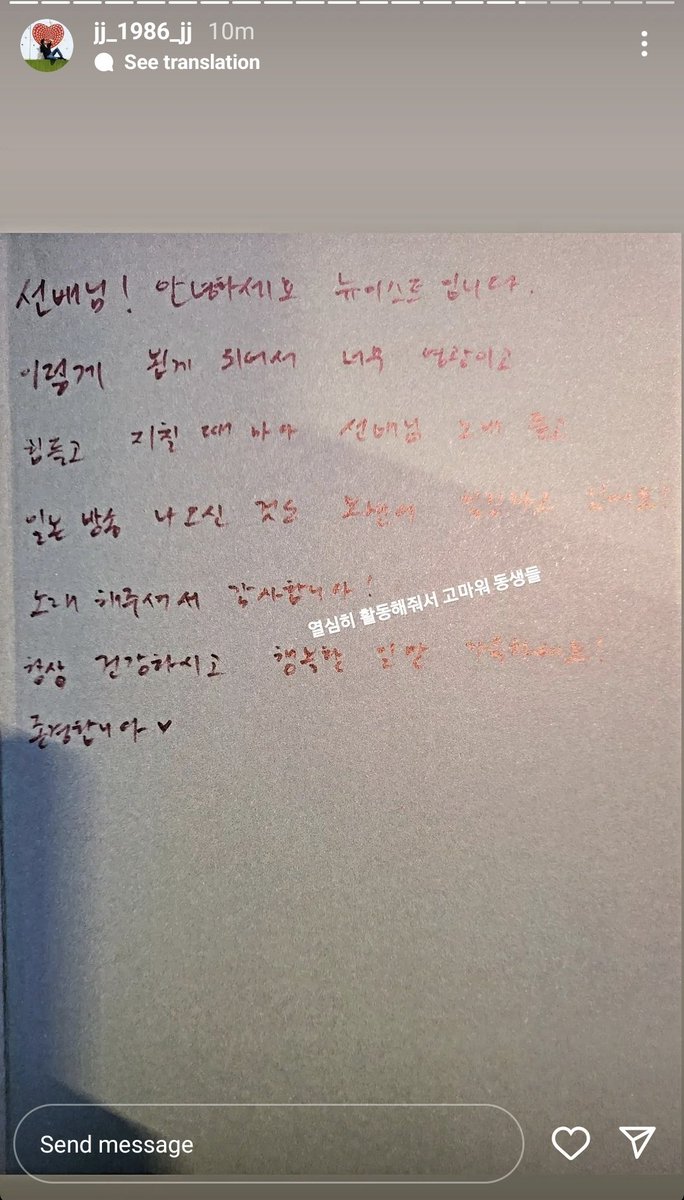 jj_1986_jj 10m
See translation
선배님! 안녕하세요 뉴이스트 입니다.
이렇게 뵙게 되어서 너무 영광이고
힘들고 지칠 때 마다 선배님 노래 듣고
일본 방송 나오신 것도 보면서
노래 해주셔서 감사합니다!
열심히 활동해줘서 고마워 동생들
항상 건강하시고 행복한 일만
존경합니다 ♥
Send message